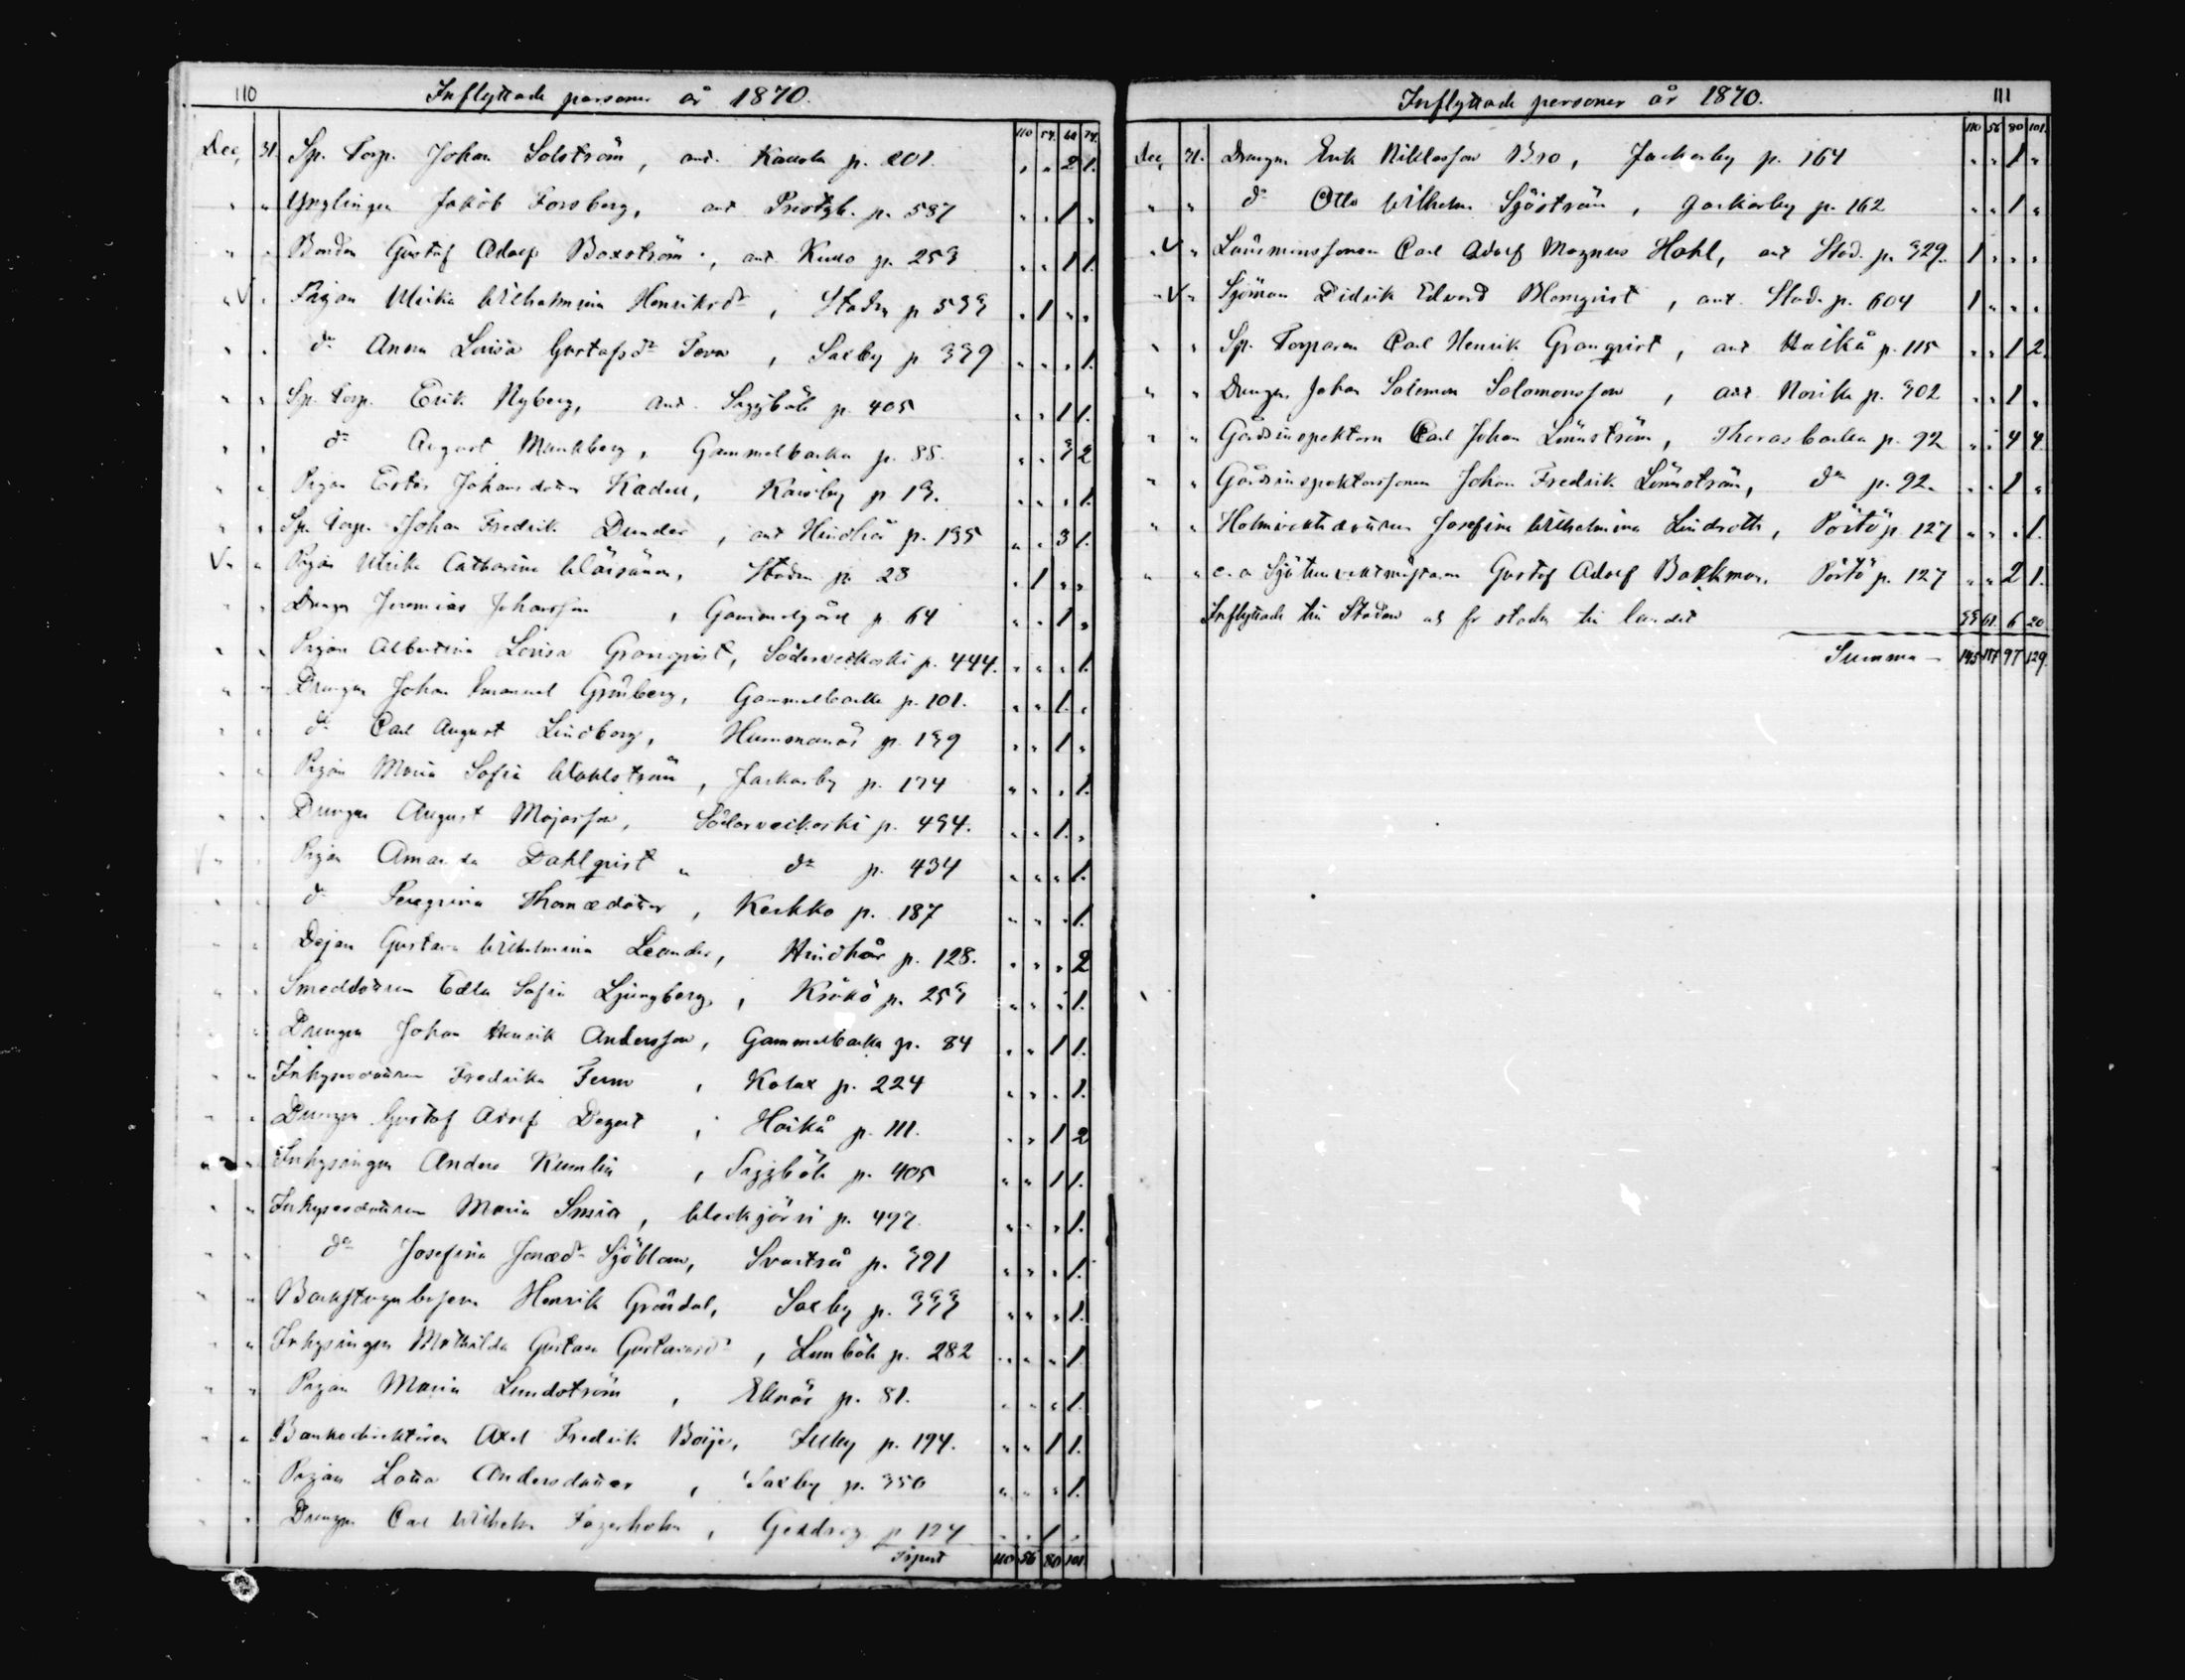 110 Inflyttade personer år 1870.
110 54. 60 74.
Dec. 31. Sp. Torp. Johan Solström, ant. p. 201. " " 2 1.
" " Ynglingen Jakob Forsberg, ant. Prestgb. p. 587 " " 1 "
" " Bonden Gustaf Adolf Boxström, ant. Kullo p. 253 " " 1 1.
" V " Pigan Ulrika Wilhelmina Henriksdr, Staden p 533 " 1 " "
" " dr Anna Lovisa Gustafsdr, Saxby p 339 " " " 1.
" " Sp. Torp. Erik Nyberg, ant. Saggböle p. 405 " " 1 1.
" " do August Munkberg, Gammelbacka p. 88. " " 3 2
" " Pigan Ester Johansdotter Kadell, Karsby p 13. " " " 1.
" " Sp. Torp. Johan Fredrik Dunder, ant Hindhår p. 135 " " 3 1.
V " " Pigan Ulrika Catharina, Staden p. 28 " 1 " "
" " Drengen Jeremias Johansson, Gammelgård p 64 " " 1 "
" " Pigan Albertina Lovisa Granqvist, Söderveckoski p. 444. " " " 1.
" " Drengen Johan Emanuel Grönberg, Gammelbacka p. 101. " " 1. "
" " do Carl August Lindberg, Hummelnäs p. 139 " " 1 "
" " Pigan Maria Sofia Wahlström, Jackarby p. 174 " " " 1.
" " Drengen August Majasson, Söderveckoski p. 434. " " 1. "
V " " Pigan Amanda Dahlqvist " do p. 434 " " " 1.
" " do Peregrina Thomædotter, Kerkko p. 187 " " " 1.
" " Dejan Gustava Wilhelmina Leander, Hindhår p. 128. " " " 2
" " Smeddottren Edla Sofia Ljungberg, Kråkö p. 253 " " " 1.
" " Drengen Johan Henrik Andersson, Gammelbacka p. 84 " " 1 1.
" " Inhysesdottren Fredrika, Kalax p. 224 " " " 1.
" " Drengen Gustaf Adolf Degert, Haikå p. 111. " " 1 2
" " Inhysingen Anders Kumlin, Saggböle p. 405 " " 1 1.
" " Inhysesdottren Maria, Weckjärvi p. 497. " " " 1.
" " do Josefina Jonædr Sjöblom, Svartså p. 391 " " " 1.
" " Backstugubesern Henrik Gröndal, Saxby p. 333 " " " 1.
" " Inhysingen Mathilda Gustava Gustavsdr, Limböle p. 282 " " " 1
" " Pigan Maria Lundström, Eknäs p. 81. " " " 1.
" " Bankodirektören Axel Fredrik Boije, Illby p. 194. " " 1 1.
" " Pigan Lovisa Andersdotter, Saxby p. 350 " " " 1.
" " Drengen Carl Wilhelm Fagerholm, p 124 " " 1 "
Tsport 110 56 80 101
Inflyttade personer år 1870. 111
110 56 80 101.
Dec. 31. Drengen Erik Niklasson Bro, Jackarby p. 164 " " 1 "
" " do Otto Wilhelm Sjöström, Jackarby p. 162 " " 1 "
" V " Länsmanssonen Carl Adolf Magnus Hohl, ant Stad. p. 329. 1 " " "
" V " Sjöman Didrik Edvard Blomqvist, ant. Stad. p. 604 1 " " "
" " Sp. Torparen Carl Henrik Granqvist, ant Haikå p. 115 " " 1 2.
" " Drengen Johan Salomon Salomonsson, ant Norike p. 302 " " 1 "
" " Gårdsinspektorn Carl Johan Lönnström, Thorasbacka p. 92 " " 4 4
" " Gårdsinspektorssonen Johan Fredrik Lönnström, do p. 92. " " 1 "
" " Josefina Wilhelmina Lindroth, Pörtö p. 127 " " " 1.
" " e. o Sjötullvaktmästaren Gustaf Adolf Backman. Pörtö p. 127 " " 2 1.
Inflyttade till Staden och fr staden till landet 33 61. 6 20
Summa — 145 117 97 129.